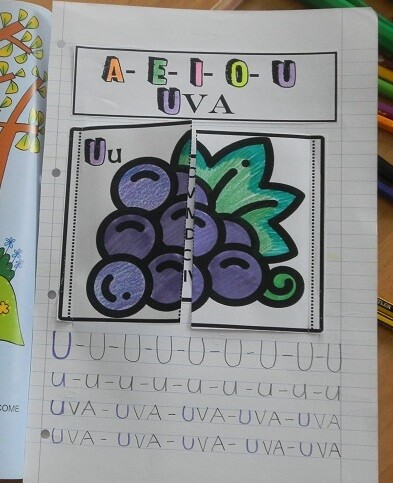 A-E-I-O-U
UVA
Uu
U-U-U-U-U-U-U-U-U
u-u-u-u-u-u-u-u-u-u
UVA-UVA-UVA-UVA-UVA
UVA-UVA-UVA-UVA-UVA
COME